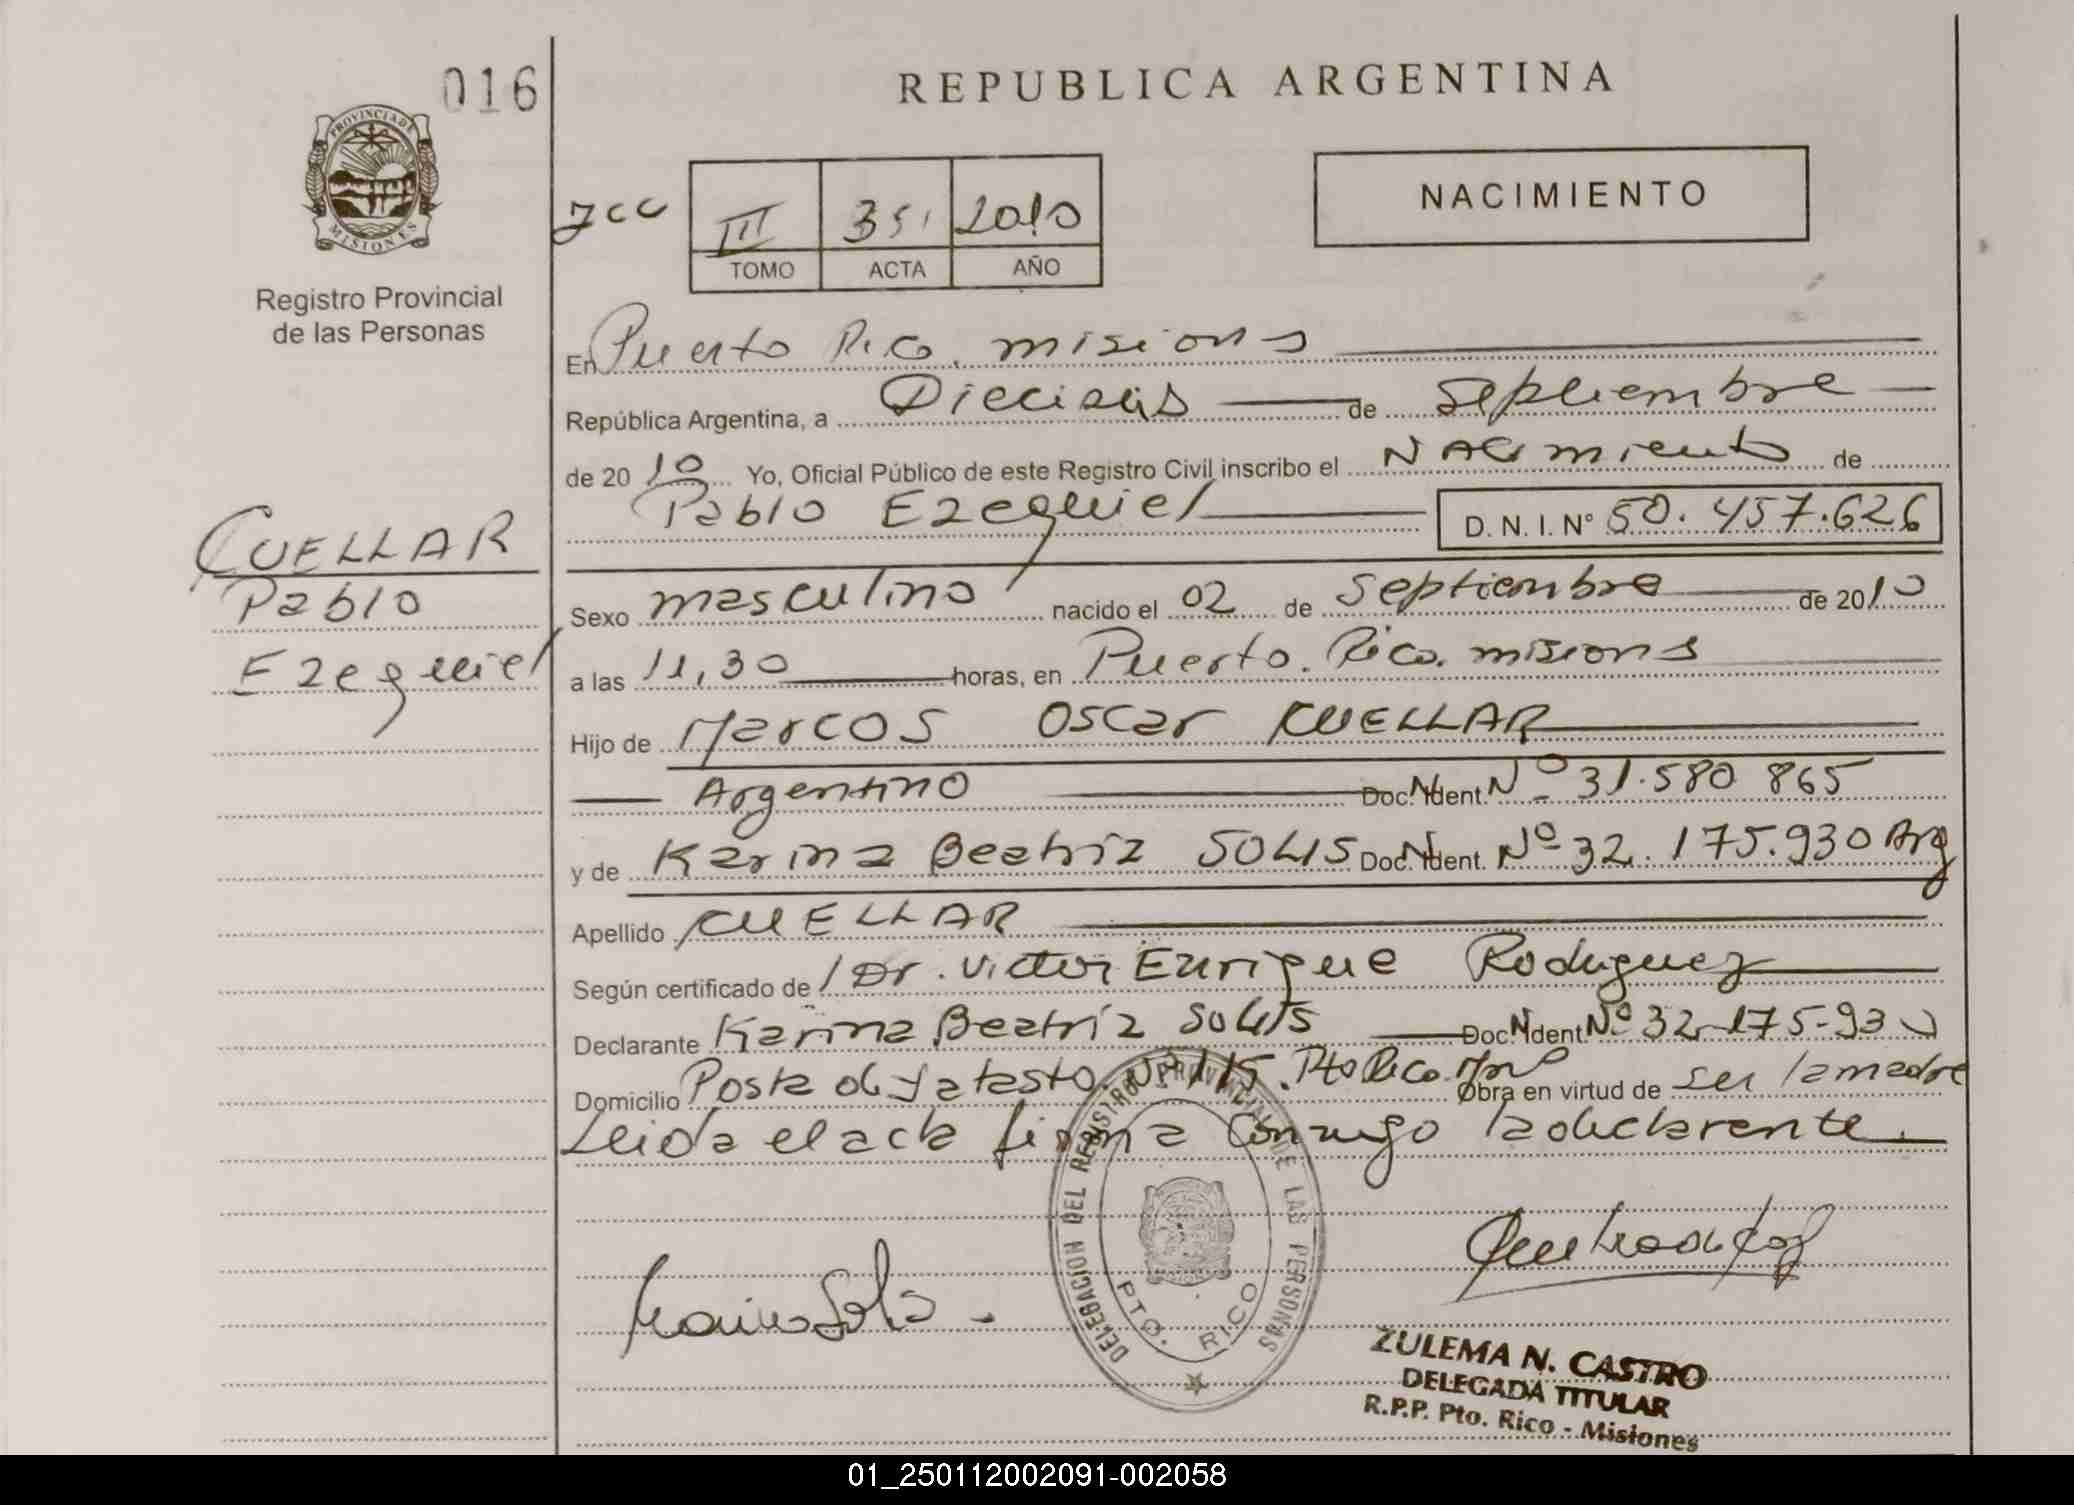 016
REPUBLICA ARGENTINA
PROVINCIA DE MISIONES
Registro Provincial
de las Personas
III 351 2010
TOMO ACTA AÑO
NACIMIENTO
En Puerto Rico. misiones
República Argentina, a Dieciseis de Septiembre
de 2010 Yo, Oficial Público de este Registro Civil inscribo el NACimiento de
Pablo Ezequiel D. N. I. N° 50.457.626
CUELLAR
Pablo
Ezequiel
Sexo masculino nacido el 02 de Septiembre de 2010
a las 11,30 horas, en Puerto. Rico. misiones
Hijo de Marcos Oscar CUELLAR
Argentino Doc. Ident. Nº 31.580 865
y de Karina Beatriz SOLIS Doc. Ident. Nº 32.175.930 Arg
Apellido CUELLAR
Según certificado de Dr. Victor Enrique Rodriguez
Declarante Karina Beatriz SOLIS Doc. Ident. Nº 32.175-930
Domicilio Posta de Yatasto. Nº 115. Pto Rico. Obra en virtud de ser la madre
Leida el acta firma conmigo la declarente.
DELEGACION DEL REGISTRO PROVINCIAL DE LAS PERSONAS
PTO. RICO
ZULEMA N. CASTRO
DELEGADA TITULAR
R.P.P. Pto. Rico - Misiones
01_250112002091-002058